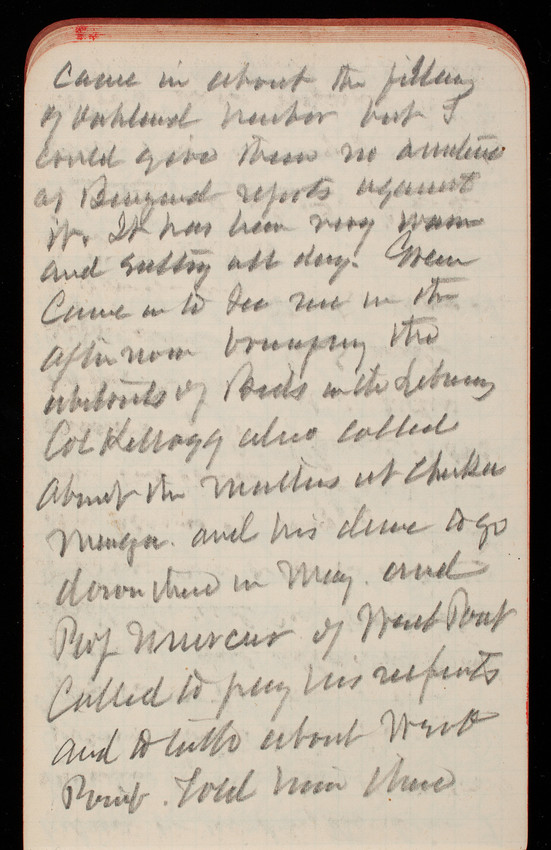 came in about the filling
of Oakland harbor but I
could give them no
as Benyaurd reports against
it. It has been very warm
and sultry all day. Green
came in to see me in the
afternoon bringing the
abstracts of Bids with
Col Kellogg also called
about the matters at Chicka
mauga. and his desire to go
down there in May. and
Prof Mercur of West Point
Called to pay his respects
and to talk about West
Point. Told him there